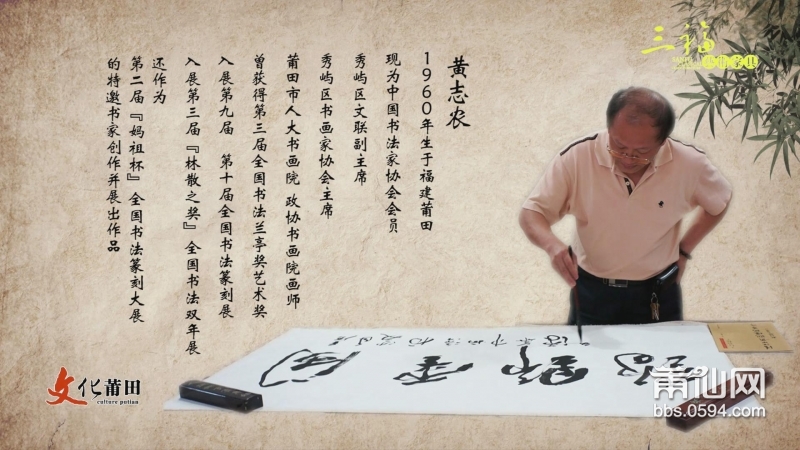 黄志农
1960年生于福建莆田
现为中国书法家协会会员
秀屿区文联副主席
秀屿区书画家协会主席
莆田市人大书画院 政协书画院画师
曾获得第三届全国书法兰亭奖艺术奖
入展第九届 第十届全国书法篆刻展
入展第三届『林散之奖』全国书法双年展
还作为
第二届『妈祖杯』全国书法篆刻大展
的特邀书家创作并展出作品
三福
文化莆田
culture putian
莆仙网
bbs.0594.com